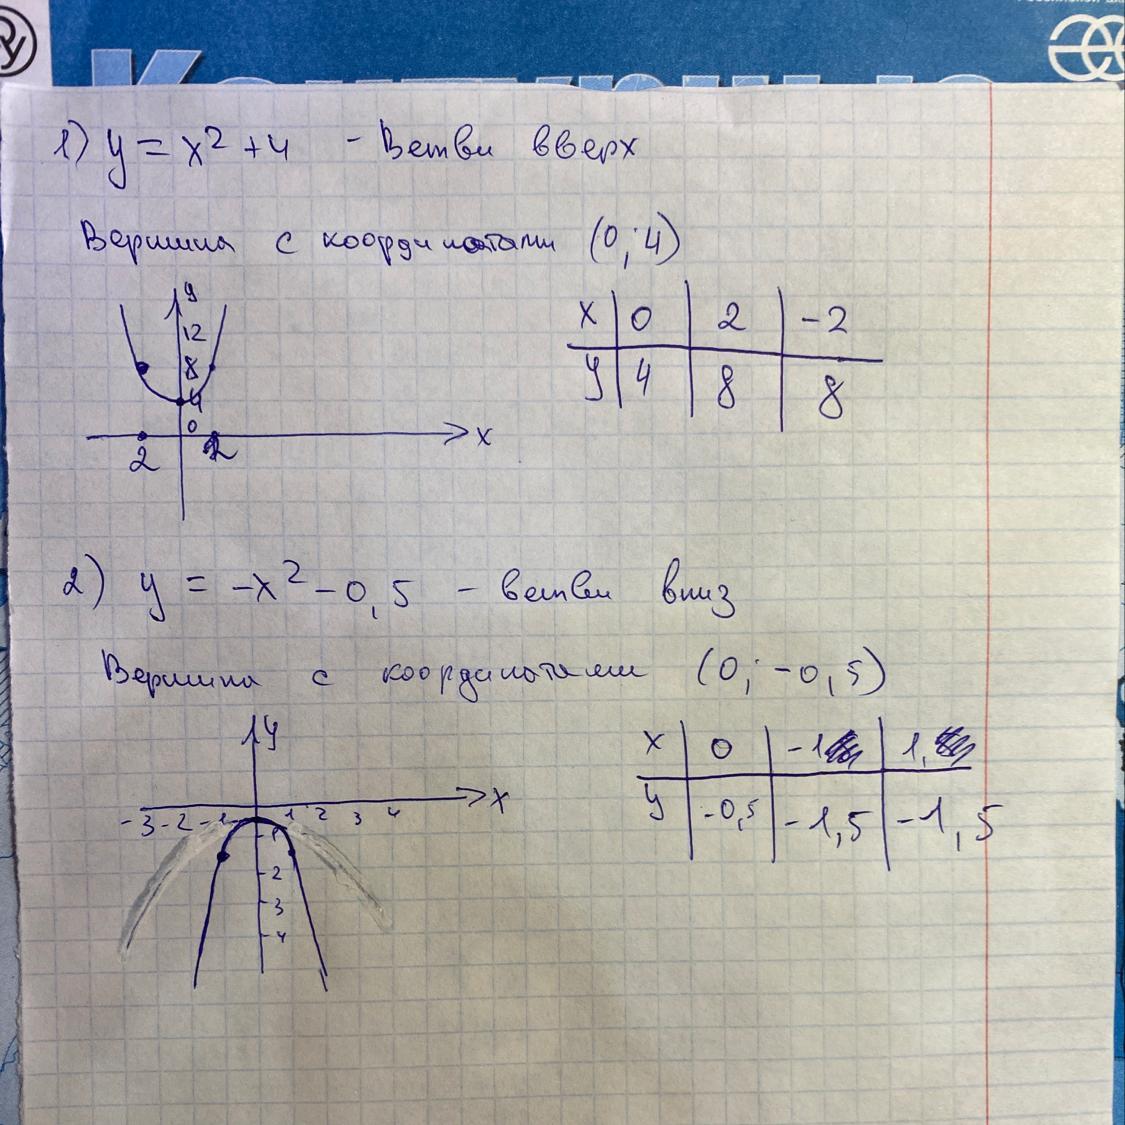 1) y = x² + 4 - Ветви вверх
Вершина с координатами (0; 4)
y
12
8
4
0
x
2
2
x 0 2 -2
y 4 8 8
2) y = -x² - 0,5 - ветви вниз
Вершина с координатами (0; -0,5)
y
x
-3 -2 -1 1 2 3 4
1
2
3
4
x 0 -1 1,
y -0,5 -1,5 -1,5